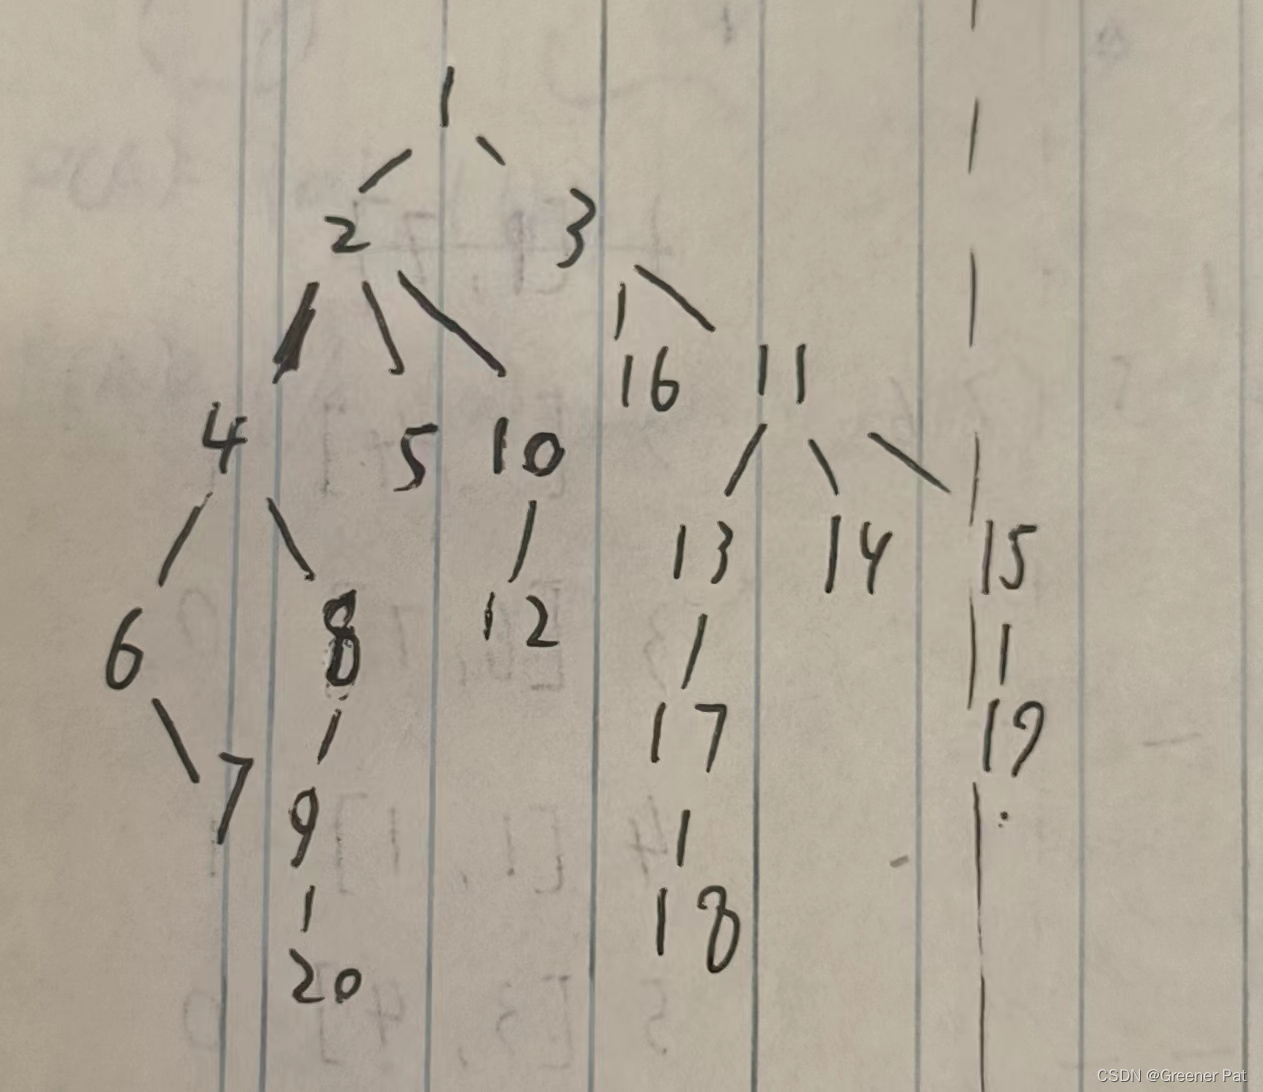 1
2 3
16 11
4 5 10
13 14 15
6 8 12
17 19
7 9
18
20
CSDN @Greener Pat